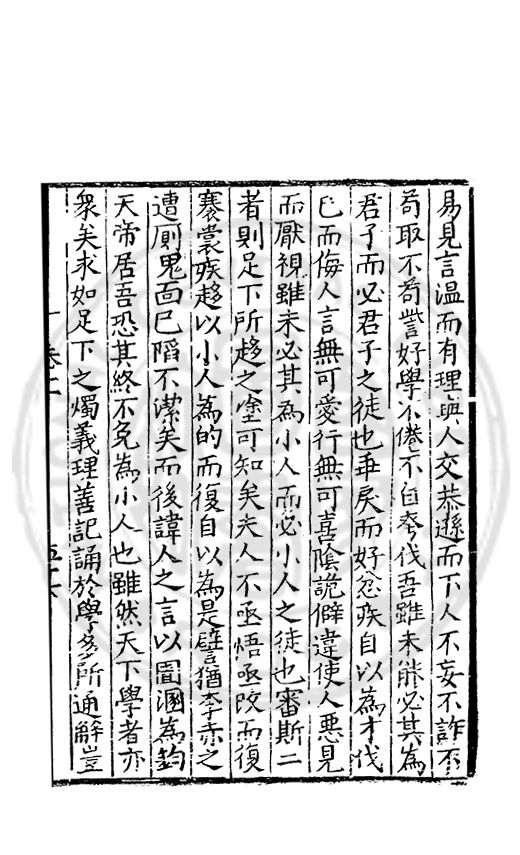 易見言溫而有理與人交恭遜而下人不妄不詐不
苟取不苟訾好學不倦不自夸伐吾雖未能必其為
君子而必君子之徒也乖戾而好忿疾自以為才伐
已而侮人言無可愛行無可喜陰詭僻違使人惡見
而厭視雖未必其為小人而必小人之徒也審斯二
者則足下所趍之塗可知矣夫人不亟悟亟改而復
褰裳疾趍以小人為的而復自以為是譬猶李赤之
遭厠鬼面已䧟不潔矣而後諱人之言以圊溷為鈞
天帝居吾恐其終不免為小人也雖然天下學者亦
衆矣求如足下之燭義理善記誦於學多所通解豈
卷二